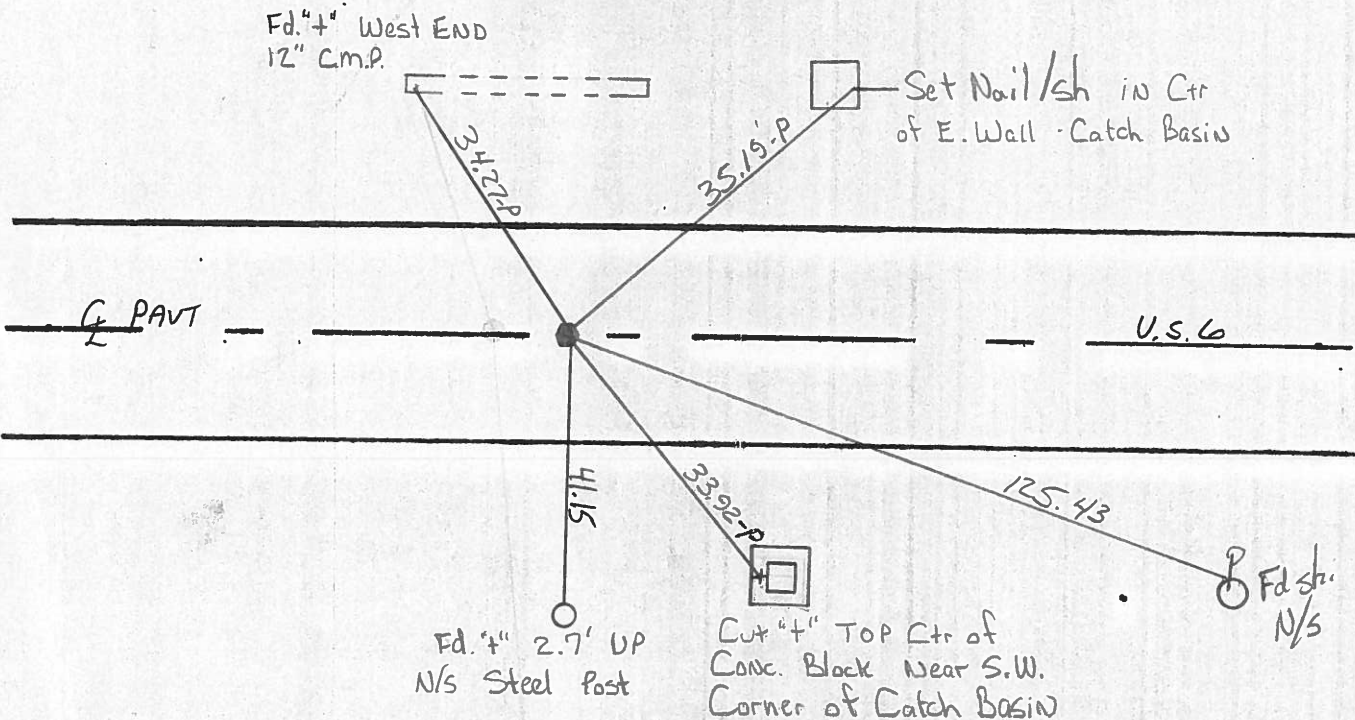 Fd. "+" West END
12" C.M.P.
Set Nail/sh in Ctr
of E. Wall - Catch Basin
34.27-P
35.19'-P
℄ PAVT
U.S. 6
41.15
33.92-P
125.43
P
Fd sh.
N/S
Fd. "+" 2.7' UP
N/S Steel Post
Cut "+" TOP Ctr of
Conc. Block Near S.W.
Corner of Catch Basin